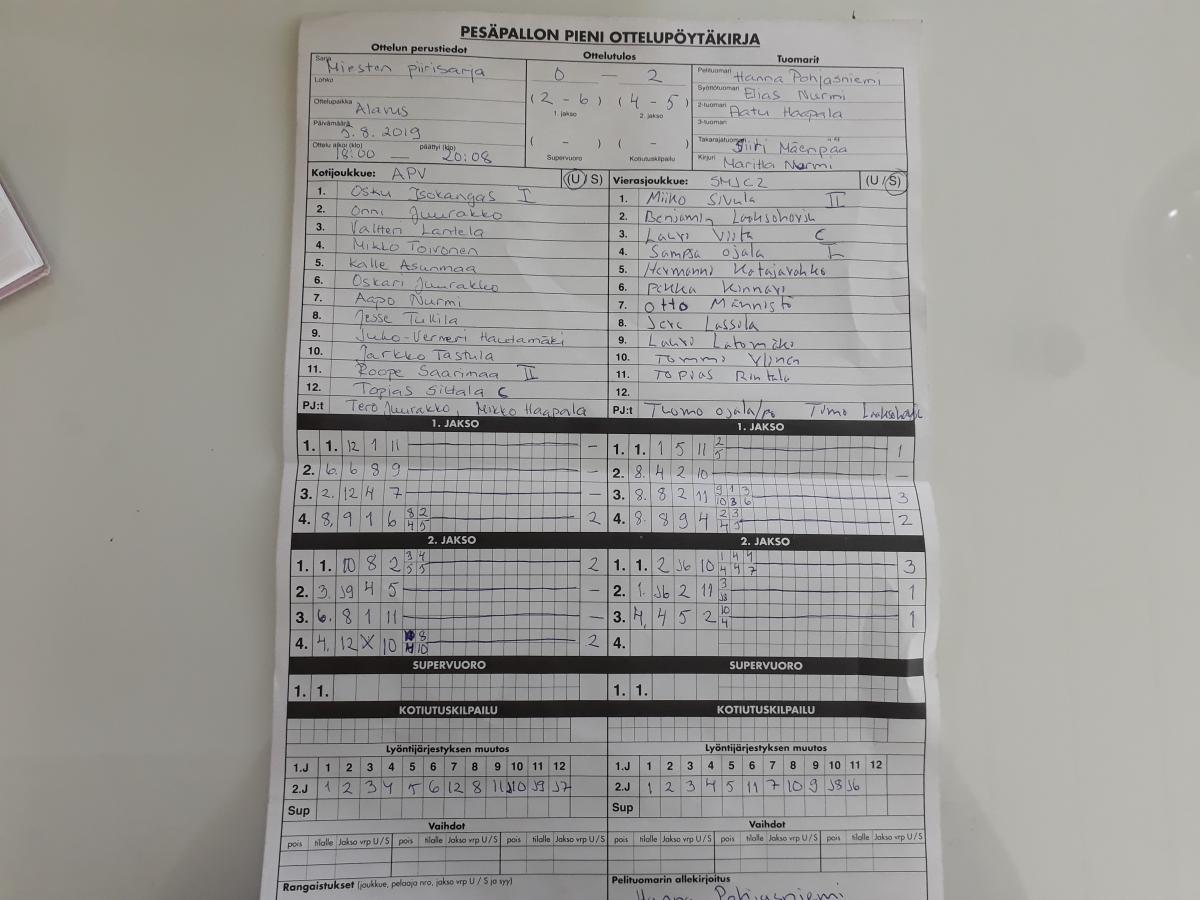 PESÄPALLON PIENI OTTELUPÖYTÄKIRJA
Ottelun perustiedot Ottelutulos Tuomarit
Sarja Miesten piirisarja 0 — 2 Pelituomari Hanna Pohjasniemi
Lohko Syöttötuomari Elias Nurmi
Ottelupaikka Alavus (2 - 6) (4 - 5) 2-tuomari Aatu Haapala
1. jakso 2. jakso 3-tuomari
Päivämäärä 5.8.2019 ( - ) ( - ) Takarajatuomarit Siiri Mäenpää
Ottelu alkoi (klo) 18:00 — päättyi (klo) 20:08 Supervuoro Kotiutuskilpailu Kirjuri Maritta Nurmi
Kotijoukkue: APV (U/S) Vierasjoukkue: SMJC2 (U/S)
1. Osku Isokangas I 1. Miiko Sivula II
2. Onni Juurakko 2. Benjamin Laaksoharju
3. Valtteri Lantela 3. Lauri Viita C
4. Mikko Toivonen 4. Sampsa Ojala I
5. Kalle Asunmaa 5. Hermanni Katajarahko
6. Oskari Juurakko 6. Pekka Kinnari
7. Aapo Nurmi 7. Otto Männistö
8. Jesse Tukila 8. Jere Lassila
9. Juho-Verneri Hautamäki 9. Lauri Latomäki
10. Jarkko Tastula 10. Tommi Ylinen
11. Roope Saarimaa II 11. Topias Rintala
12. Topias Siltala C 12.
PJ:t Tero Juurakko, Mikko Haapala PJ:t Tuomo Ojala/po Timo Laaksoharju
1. JAKSO 1. JAKSO
1. 1. 12 1 11 — 1. 1. 1 5 11 2/5 1
2. 6. 6 8 9 — 2. 8. 4 2 10 —
3. 2. 12 4 7 — 3. 8. 8 2 11 9/10 1/3 3/6 3
4. 8. 9 1 6 8/4 2/5 2 4. 8. 8 9 4 2/4 3/5 2
2. JAKSO 2. JAKSO
1. 1. 10 8 2 3/5 4/5 2 1. 1. 2 J6 10 1/4 4/4 4/7 3
2. 3. J9 4 5 — 2. 1. J6 2 11 3/J8 1
3. 6. 8 1 11 — 3. 4. 4 5 2 10/4 1
4. 4. 12 X 10 8/10 2 4.
SUPERVUORO SUPERVUORO
1. 1. 1. 1.
KOTIUTUSKILPAILU KOTIUTUSKILPAILU
Lyöntijärjestyksen muutos Lyöntijärjestyksen muutos
1.J 1 2 3 4 5 6 7 8 9 10 11 12 1.J 1 2 3 4 5 6 7 8 9 10 11 12
2.J 1 2 3 4 5 6 12 8 11 J10 J9 J7 2.J 1 2 3 4 5 11 7 10 9 J8 J6
Sup Sup
Vaihdot Vaihdot
pois tilalle Jakso vrp U/S pois tilalle Jakso vrp U/S pois tilalle Jakso vrp U/S pois tilalle Jakso vrp U/S pois tilalle Jakso vrp U/S pois tilalle Jakso vrp U/S
Rangaistukset (joukkue, pelaaja nro, jakso vrp U / S ja syy) Pelituomarin allekirjoitus
Hanna Pohjasniemi